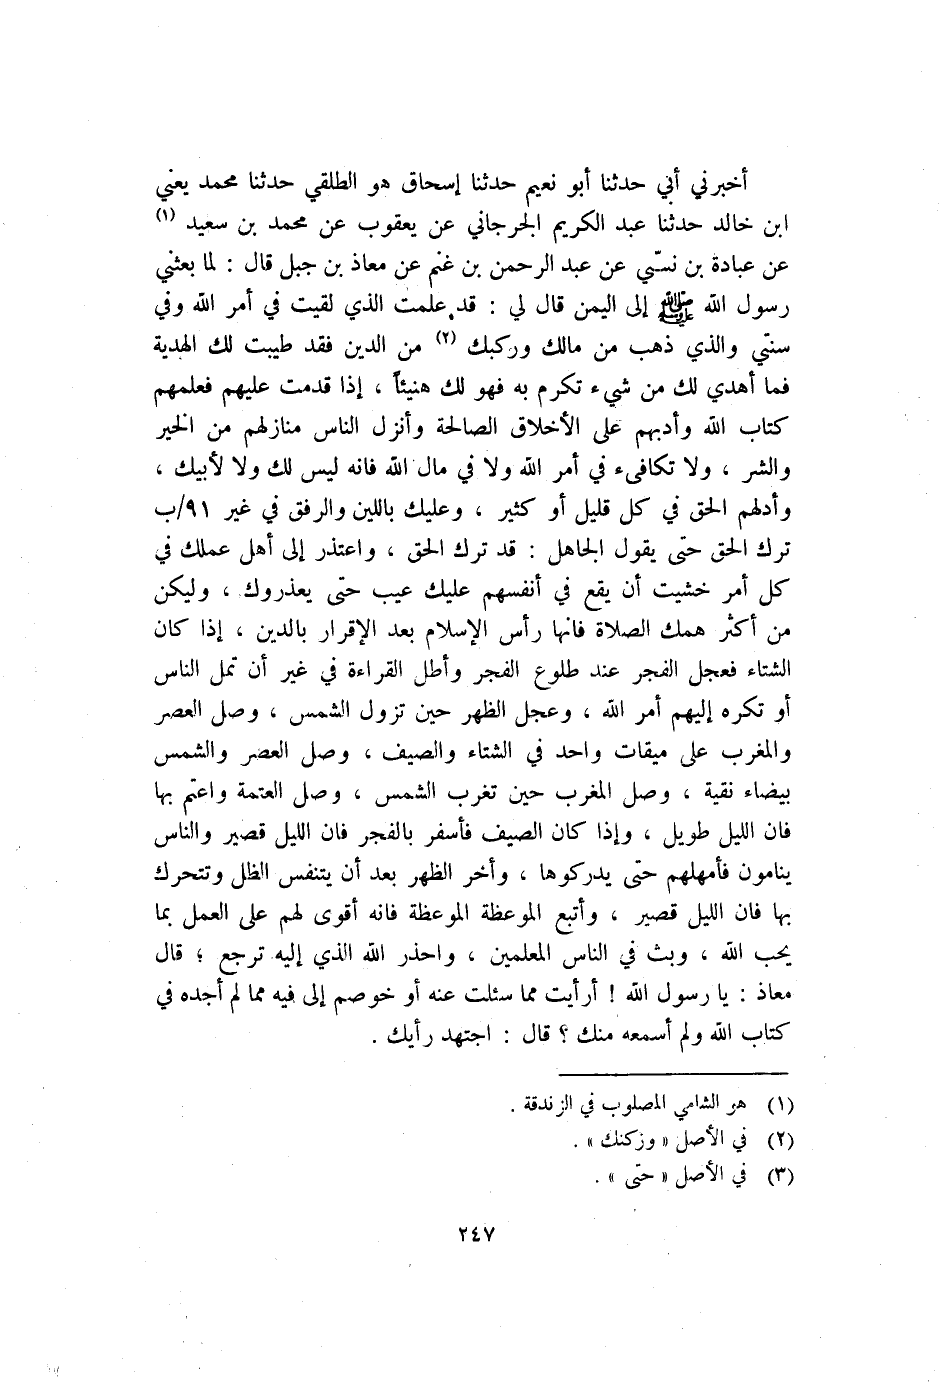 أخبرني أبي حدثنا أبو نعيم حدثنا إسحاق هو الطلقي حدثنا محمد يعني
ابن خالد حدثنا عبد الكريم الجرجاني عن يعقوب عن محمد بن سعيد (١)
عن عبادة بن نسّي عن عبد الرحمن بن غنم عن معاذ بن جبل قال : لما بعثني
رسول الله ﷺ إلى اليمن قال لي : قد علمت الذي لقيت في أمر الله وفي
سنتي والذي ذهب من مالك وركبك (٢) من الدين فقد طيبت لك الهدية
فما أهدي لك من شيء تكرم به فهو لك هنيئاً ، إذا قدمت عليهم فعلمهم
كتاب الله وأدبهم على الأخلاق الصالحة وأنزل الناس منازلهم من الخير
والشر ، ولا تكافىء في أمر الله ولا في مال الله فانه ليس لك ولا لأبيك ،
وأدلهم الحق في كل قليل أو كثير ، وعليك باللين والرفق في غير ٩١/ب
ترك الحق حتى يقول الجاهل : قد ترك الحق ، واعتذر إلى أهل عملك في
كل أمر خشيت أن يقع في أنفسهم عليك عيب حتى يعذروك ، وليكن
من أكثر همك الصلاة فانها رأس الإسلام بعد الإقرار بالدين ، إذا كان
الشتاء فعجل الفجر عند طلوع الفجر وأطل القراءة في غير أن تمل الناس
أو تكره إليهم أمر الله ، وعجل الظهر حين تزول الشمس ، وصل العصر
والمغرب على ميقات واحد في الشتاء والصيف ، وصل العصر والشمس
بيضاء نقية ، وصل المغرب حين تغرب الشمس ، وصل العتمة واعتم بها
فان الليل طويل ، وإذا كان الصيف فأسفر بالفجر فان الليل قصير والناس
ينامون فأمهلهم حتى يدركوها ، وأخر الظهر بعد أن يتنفس الظل وتتحرك
بها فان الليل قصير ، وأتبع الموعظة الموعظة فانه أقوى لهم على العمل بما
يحب الله ، وبث في الناس المعلمين ، واحذر الله الذي إليه ترجع ؛ قال
معاذ : يا رسول الله ! أرأيت مما سئلت عنه أو خوصم إلى فيه مما لم أجده في
كتاب الله ولم أسمعه منك ؟ قال : اجتهد رأيك .
(١) هو الشامي المصلوب في الزندقة .
(٢) في الأصل « وزكنك » .
(٣) في الأصل « حتى » .
٢٤٧